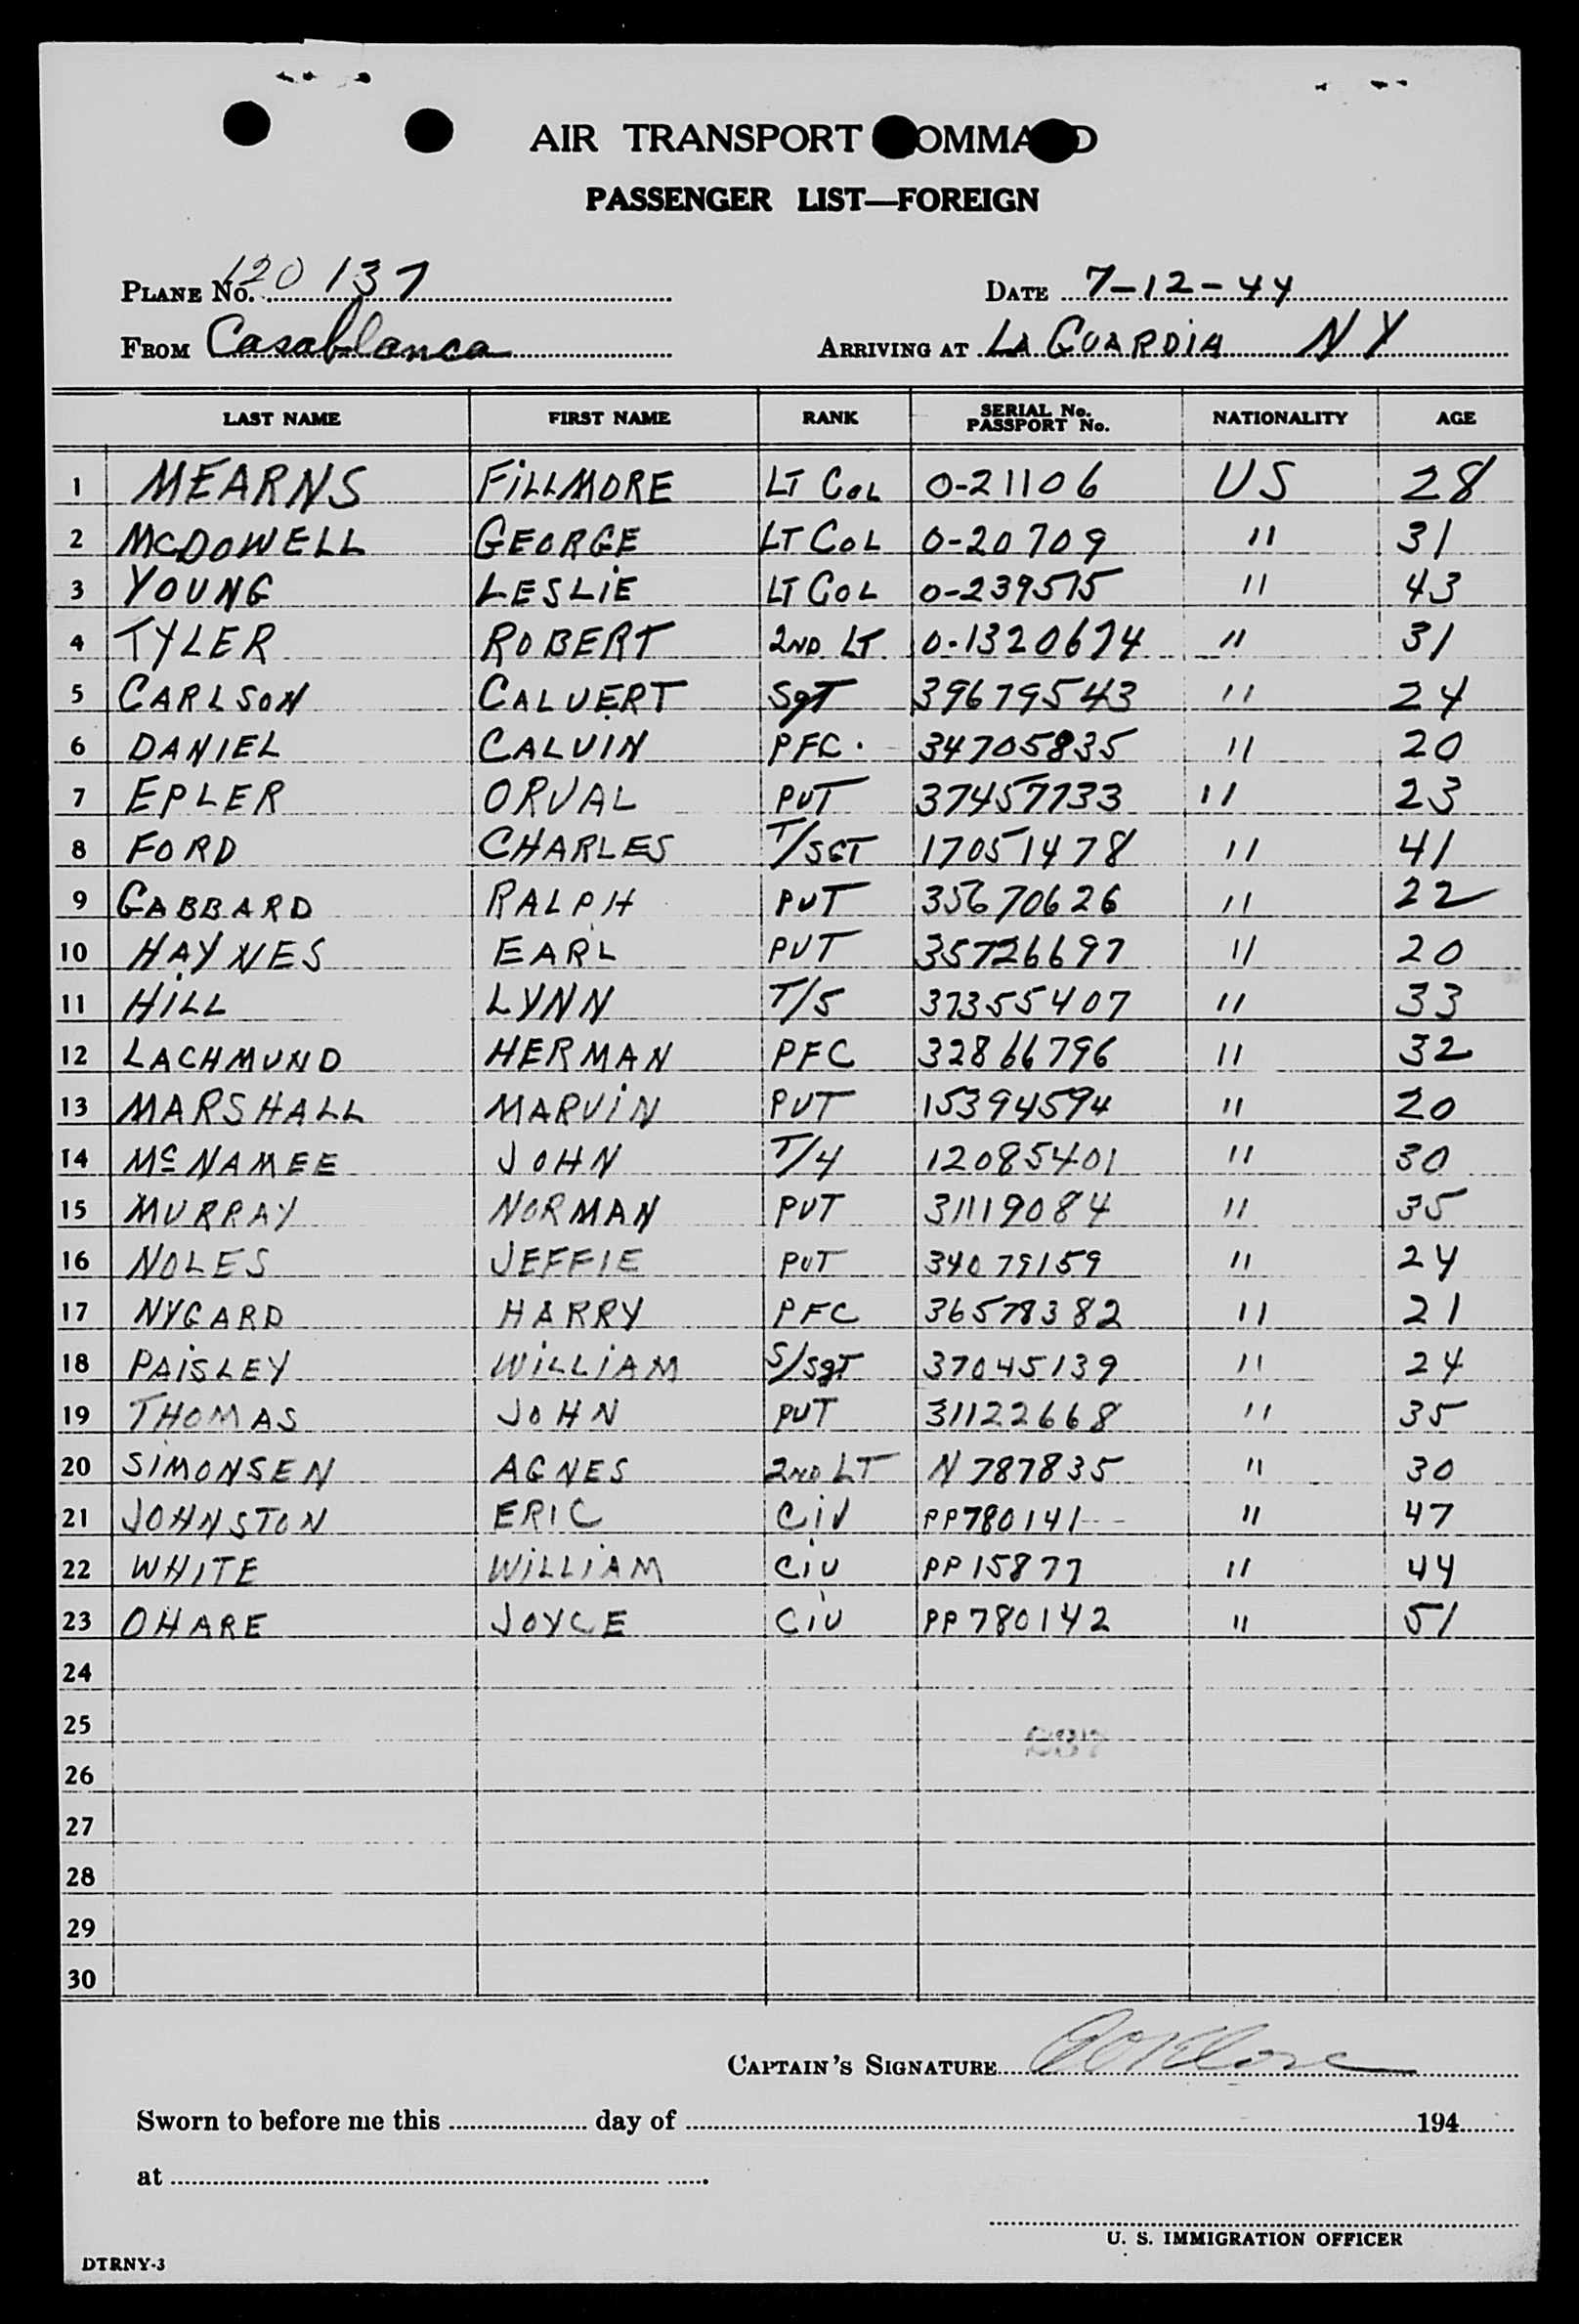 AIR TRANSPORT COMMAND
PASSENGER LIST—FOREIGN
PLANE No. 120 137 DATE 7-12-44
FROM Casablanca ARRIVING AT LA GUARDIA N Y
LAST NAME FIRST NAME RANK SERIAL No. PASSPORT No. NATIONALITY AGE
1 MEARNS FILLMORE LT COL 0-21106 US 28
2 MCDOWELL GEORGE LT COL 0-20709 " 31
3 YOUNG LESLIE LT COL 0-239515 " 43
4 TYLER ROBERT 2ND LT 0-1320674 " 31
5 CARLSON CALVERT SgT 39679543 " 24
6 DANIEL CALVIN PFC. 34705835 " 20
7 EPLER ORVAL PVT 37457733 " 23
8 FORD CHARLES T/SGT 17051478 " 41
9 GABBARD RALPH PVT 35670626 " 22
10 HAYNES EARL PVT 35726697 " 20
11 HILL LYNN T/5 37355407 " 33
12 LACHMUND HERMAN PFC 32866796 " 32
13 MARSHALL MARVIN PVT 15394594 " 20
14 McNAMEE JOHN T/4 12085401 " 30
15 MURRAY NORMAN PVT 31119084 " 35
16 NOLES JEFFIE PVT 34079159 " 24
17 NYGARD HARRY PFC 36578382 " 21
18 PAISLEY WILLIAM S/SgT 37045139 " 24
19 THOMAS JOHN PVT 31122668 " 35
20 SIMONSEN AGNES 2ND LT N787835 " 30
21 JOHNSTON ERIC CIV PP780141 " 47
22 WHITE WILLIAM CIV PP15877 " 44
23 OHARE JOYCE CIV PP780142 " 51
24
25
26
27
28
29
30
CAPTAIN'S SIGNATURE
Sworn to before me this day of 194
at
U. S. IMMIGRATION OFFICER
DTRNY-3